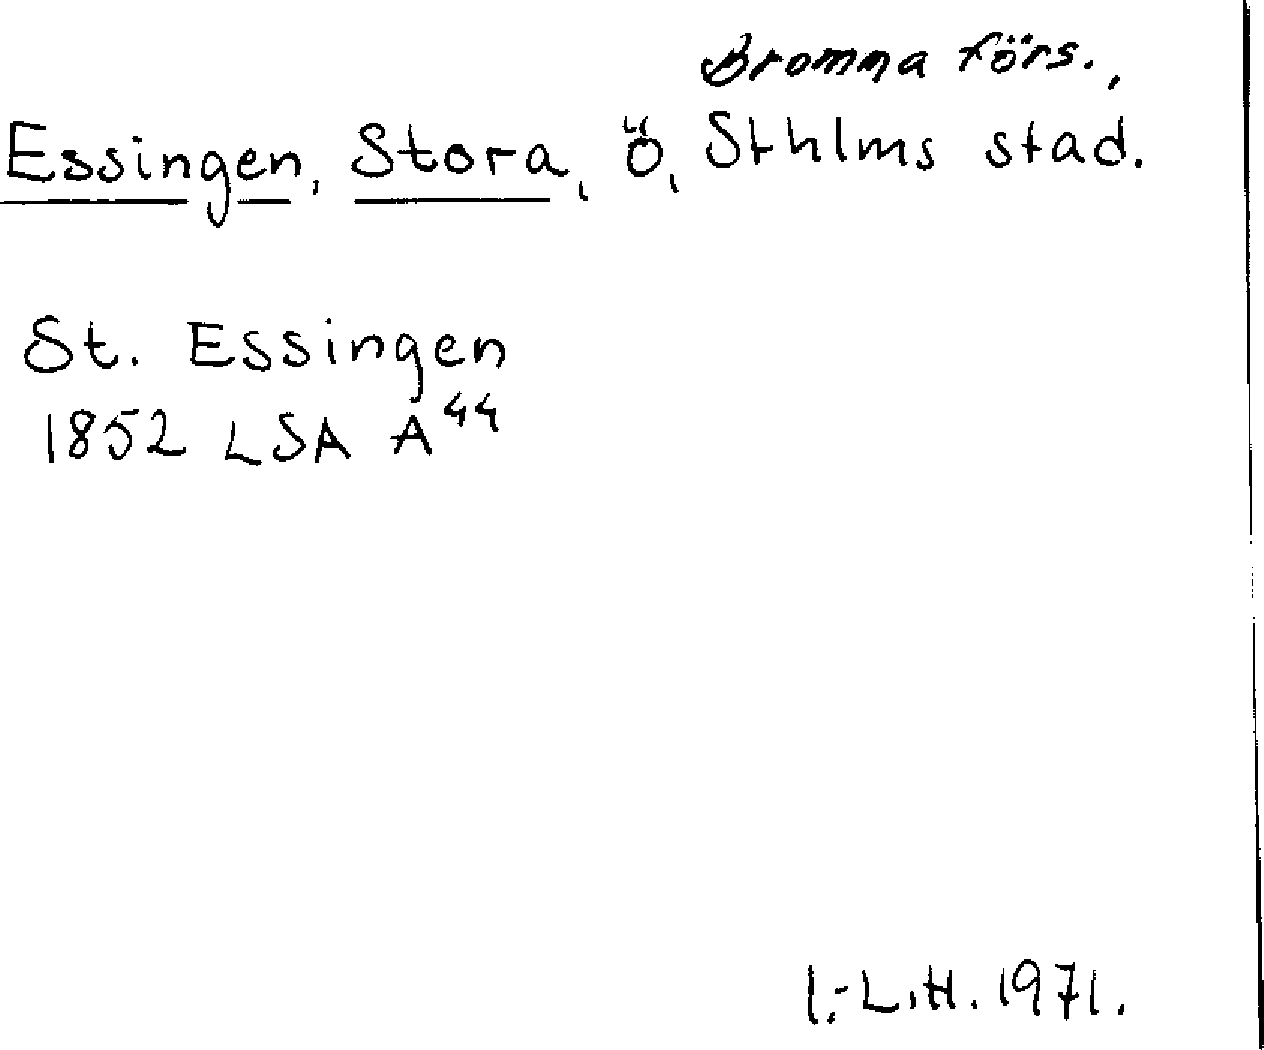 Bromma förs.,
Essingen, Stora, ö, Sthlms stad.
St. Essingen
1852 LSA A⁴⁴
I.-L.H. 1971.